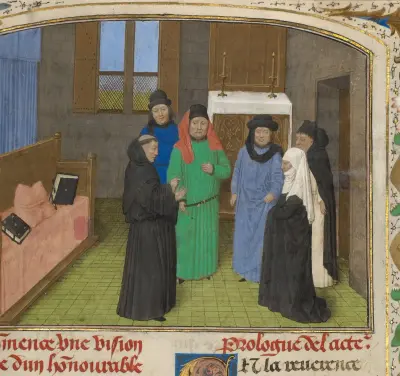 mence vne vision
e dun hõnourable
Prologue de lacteᷣ
En la reuerence